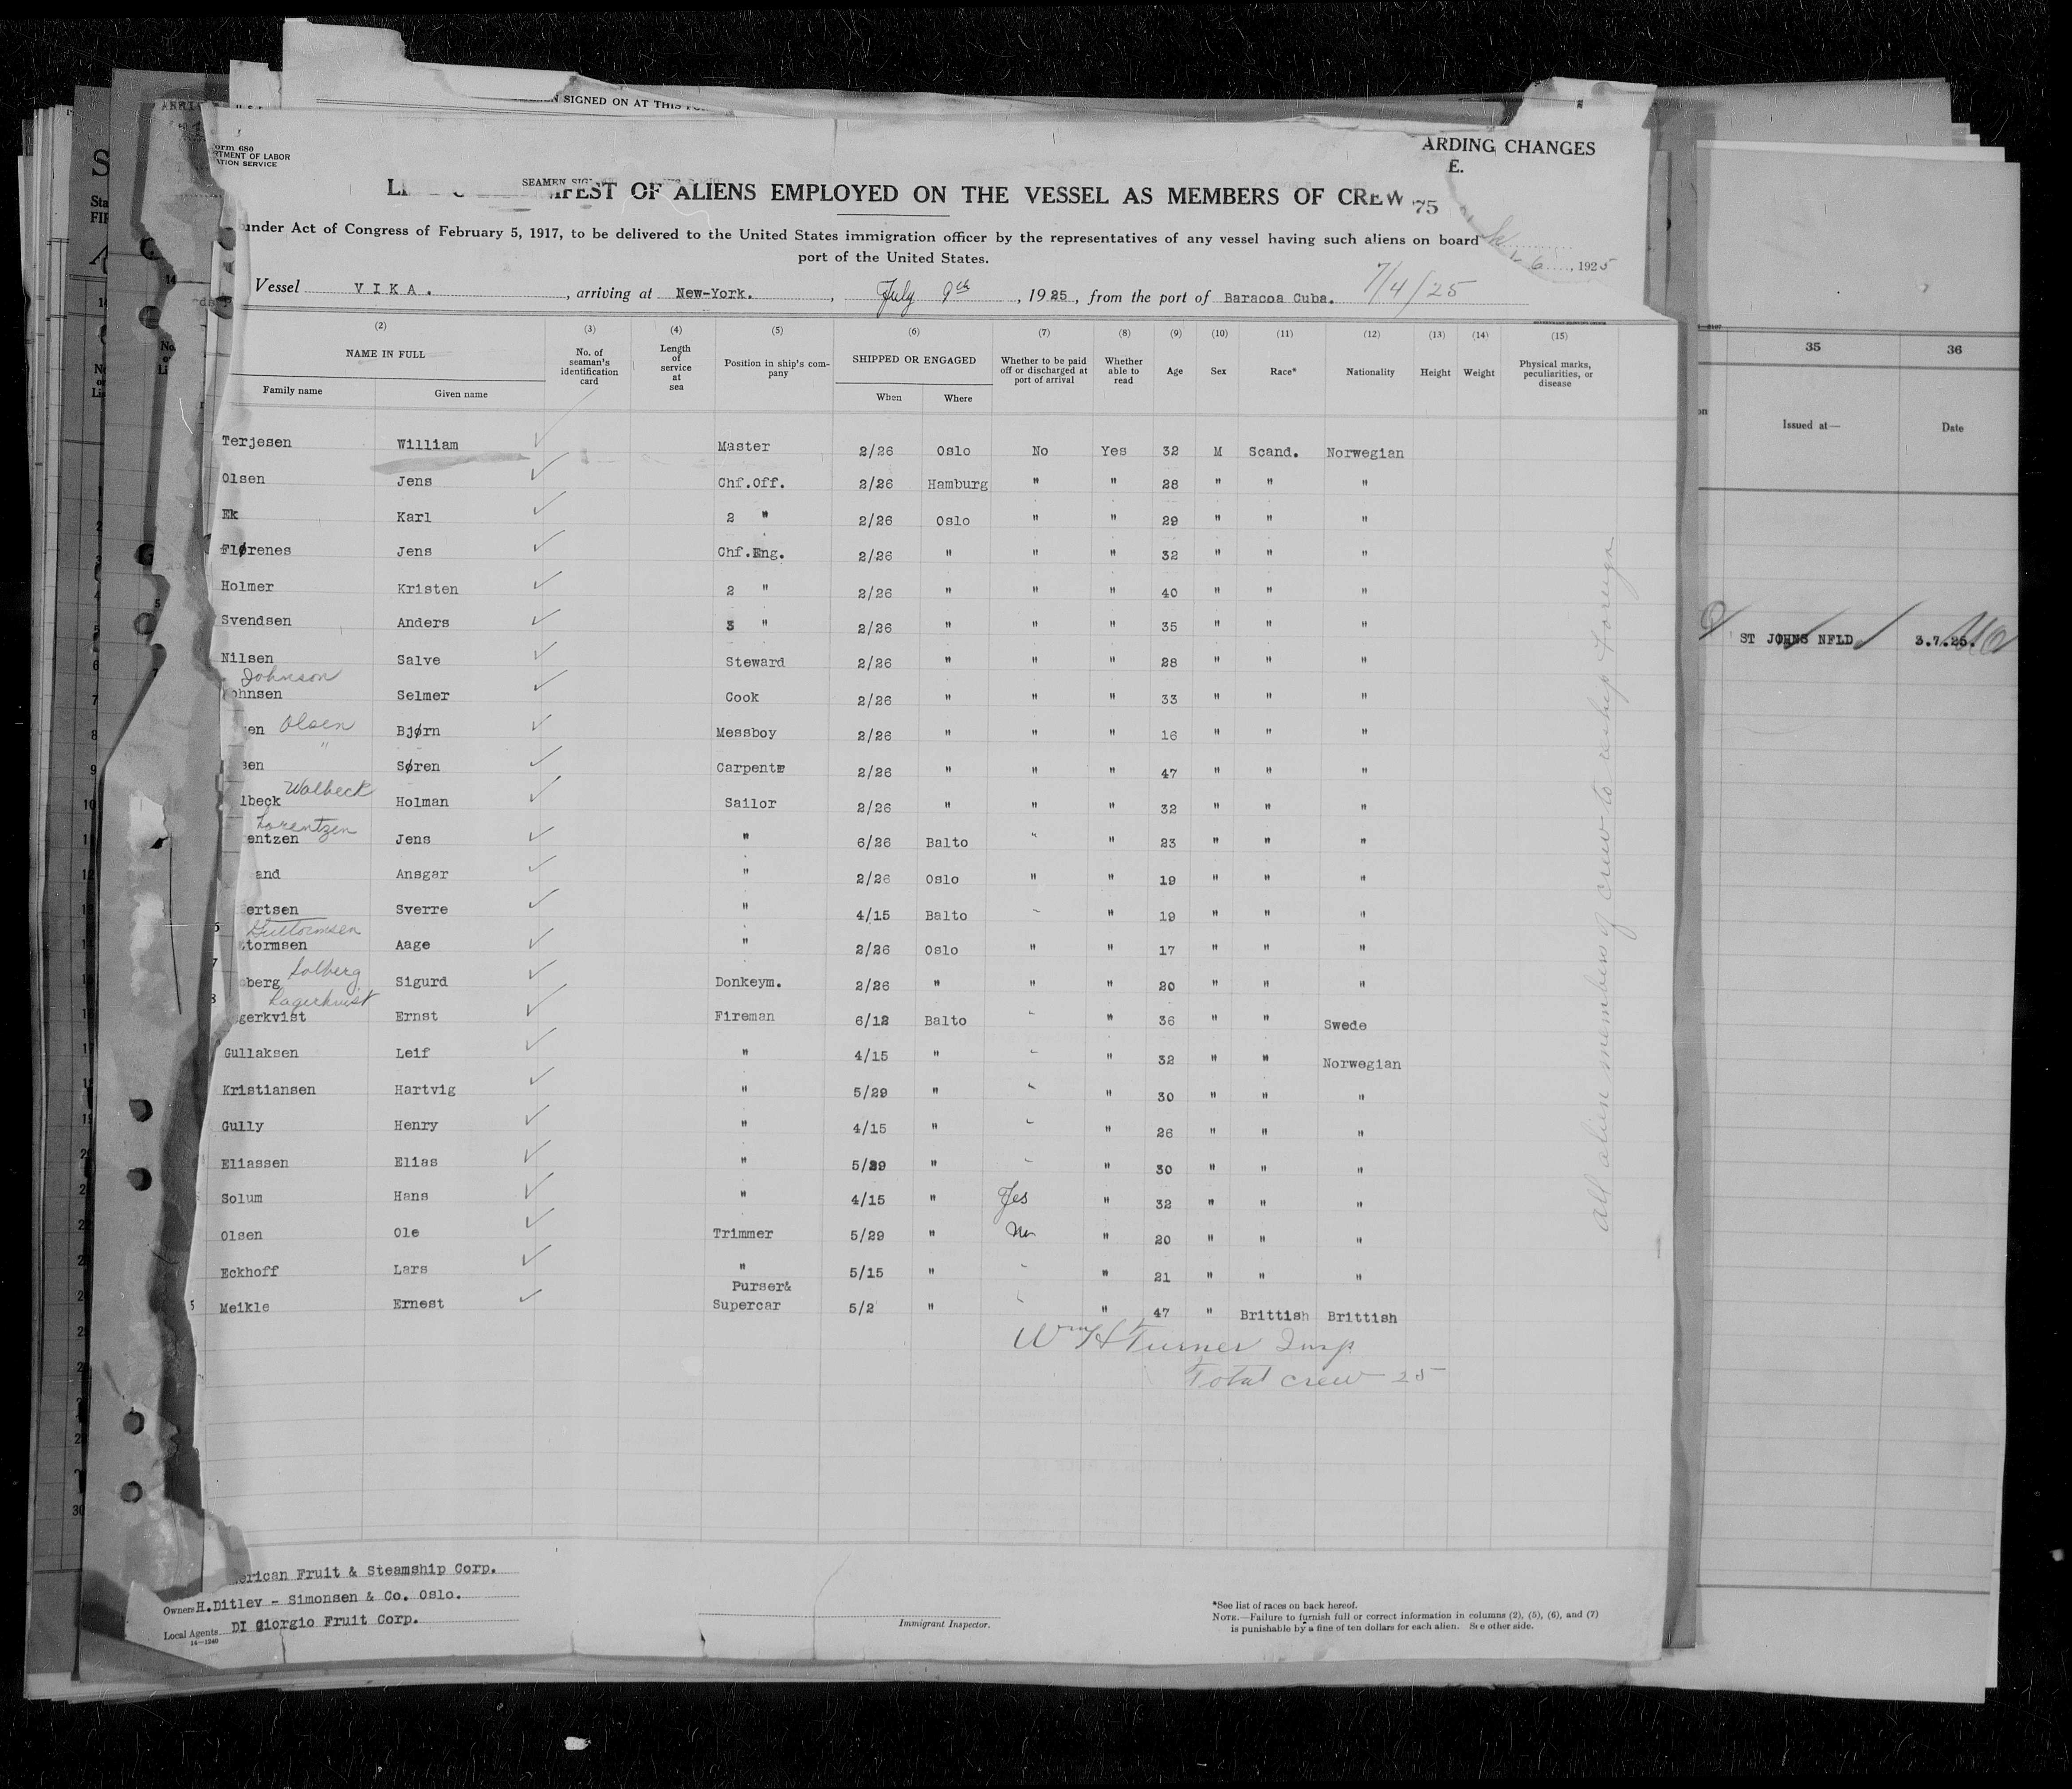 SIGNED ON AT THIS
ARDING CHANGES
E.
orm 680
RTMENT OF LABOR
ATION SERVICE
SEAMEN
IFEST OF ALIENS EMPLOYED ON THE VESSEL AS MEMBERS OF CREW
75
under Act of Congress of February 5, 1917, to be delivered to the United States immigration officer by the representatives of any vessel having such aliens on board
port of the United States.
6, 1925
Vessel VIKA., arriving at New-York., July 9th, 1925, from the port of Baracoa Cuba. 7/4/25
(2) (3) (4) (5) (6) (7) (8) (9) (10) (11) (12) (13) (14) (15)
NAME IN FULL No. of seaman's identification card Length of service at sea Position in ship's company SHIPPED OR ENGAGED Whether to be paid off or discharged at port of arrival Whether able to read Age Sex Race* Nationality Height Weight Physical marks, peculiarities, or disease
Family name Given name When Where
35 36
Issued at— Date
Terjesen William Master 2/26 Oslo No Yes 32 M Scand. Norwegian
Olsen Jens Chf.Off. 2/26 Hamburg " " 28 " " "
Ek Karl 2 " 2/26 Oslo " " 29 " " "
Flørenes Jens Chf.Eng. 2/26 " " " 32 " " "
Holmer Kristen 2 " 2/26 " " " 40 " " "
Svendsen Anders 3 " 2/26 " " " 35 " " "
ST JOHNS NFLD 3.7.25.
Nilsen Salve Steward 2/26 " " " 28 " " "
Johnson
ohnsen Selmer Cook 2/26 " " " 33 " " "
en Olsen Bjørn Messboy 2/26 " " " 16 " " "
"
sen Søren Carpente 2/26 " " " 47 " " "
Walbeck
lbeck Holman Sailor 2/26 " " " 32 " " "
Lorentzen
entzen Jens " 6/26 Balto " " 23 " " "
and Ansgar " 2/26 Oslo " " 19 " " "
ertsen Sverre " 4/15 Balto " " 19 " " "
Guttormsen
tormsen Aage " 2/26 Oslo " " 17 " " "
Solberg
berg Sigurd Donkeym. 2/26 " " " 20 " " "
Lagerkvist
gerkvist Ernst Fireman 6/12 Balto " " 36 " " Swede
Gullaksen Leif " 4/15 " " " 32 " " Norwegian
Kristiansen Hartvig " 5/29 " " " 30 " " "
Gully Henry " 4/15 " " " 26 " " "
Eliassen Elias " 5/29 " " " 30 " " "
Solum Hans " 4/15 " Yes " 32 " " "
Olsen Ole Trimmer 5/29 " No " 20 " " "
Eckhoff Lars " 5/15 " " " 21 " " "
Purser&
Meikle Ernest Supercar 5/2 " " " 47 " Brittish Brittish
Wm H Turner Insp
Total crew 25
All alien members of crew to reship foreign
erican Fruit & Steamship Corp.
Owners H.Ditlev - Simonsen & Co. Oslo.
Local Agents DI Giorgio Fruit Corp.
14—1240
Immigrant Inspector.
*See list of races on back hereof.
NOTE.—Failure to furnish full or correct information in columns (2), (5), (6), and (7)
is punishable by a fine of ten dollars for each alien. See other side.